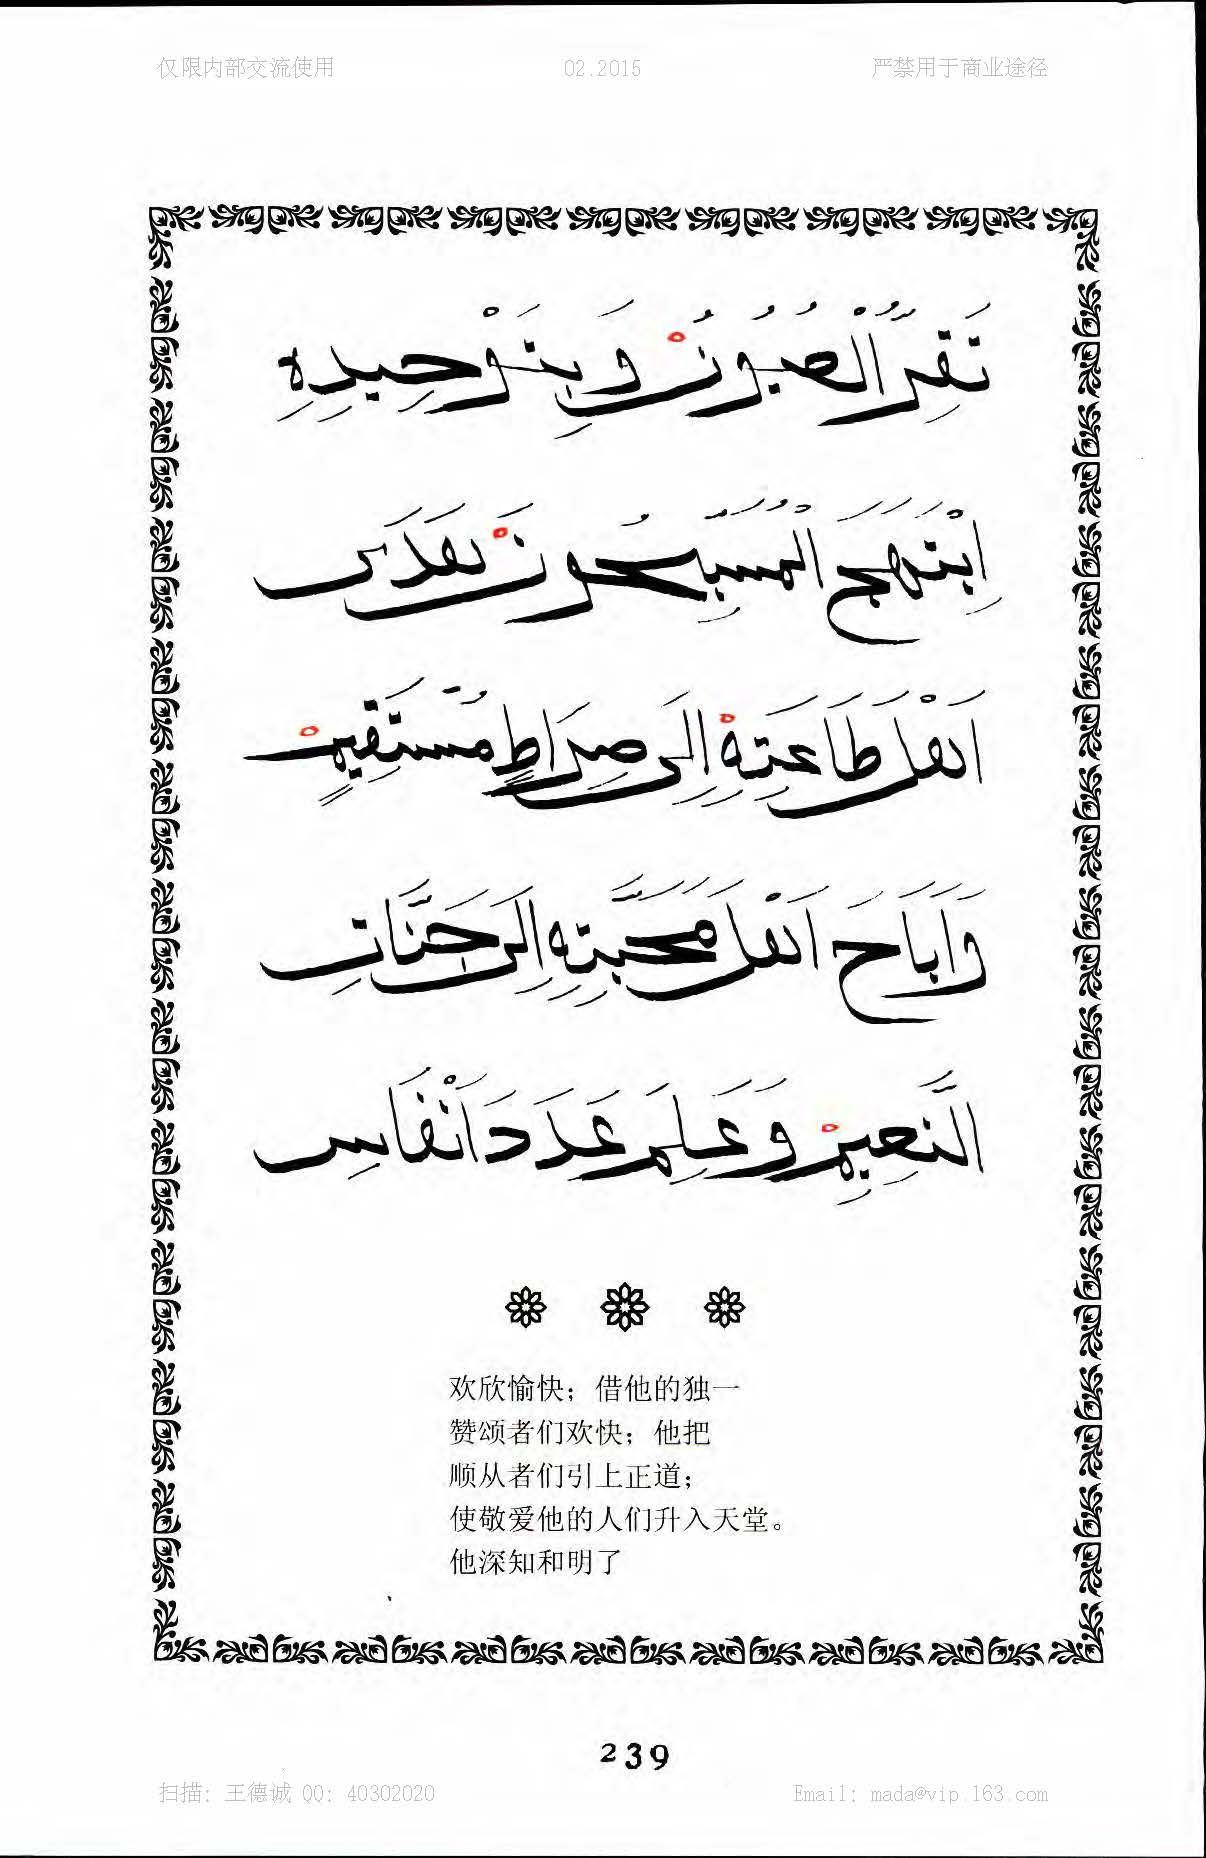 仅限内部交流使用 02.2015 严禁用于商业途径
تَقِرُّ الْعُيُونُ وَبِتَوْحِيدِهِ
اِبْتَهَجَ الْمُسَبِّحُونَ هَدَى
اَهْلَ طَاعَتِهِ اِلَى صِرَاطٍ مُسْتَقِيمٍ
وَاَبَاحَ اَهْلَ مَحَبَّتِهِ اِلَى جَنَّاتِ
النَّعِيمِ وَعَلِمَ عَدَدَ اَنْفَاسِ
欢欣愉快；借他的独一
赞颂者们欢快；他把
顺从者们引上正道；
使敬爱他的人们升入天堂。
他深知和明了
239
扫描: 王德诚 QQ: 40302020 Email: mada@vip.163.com